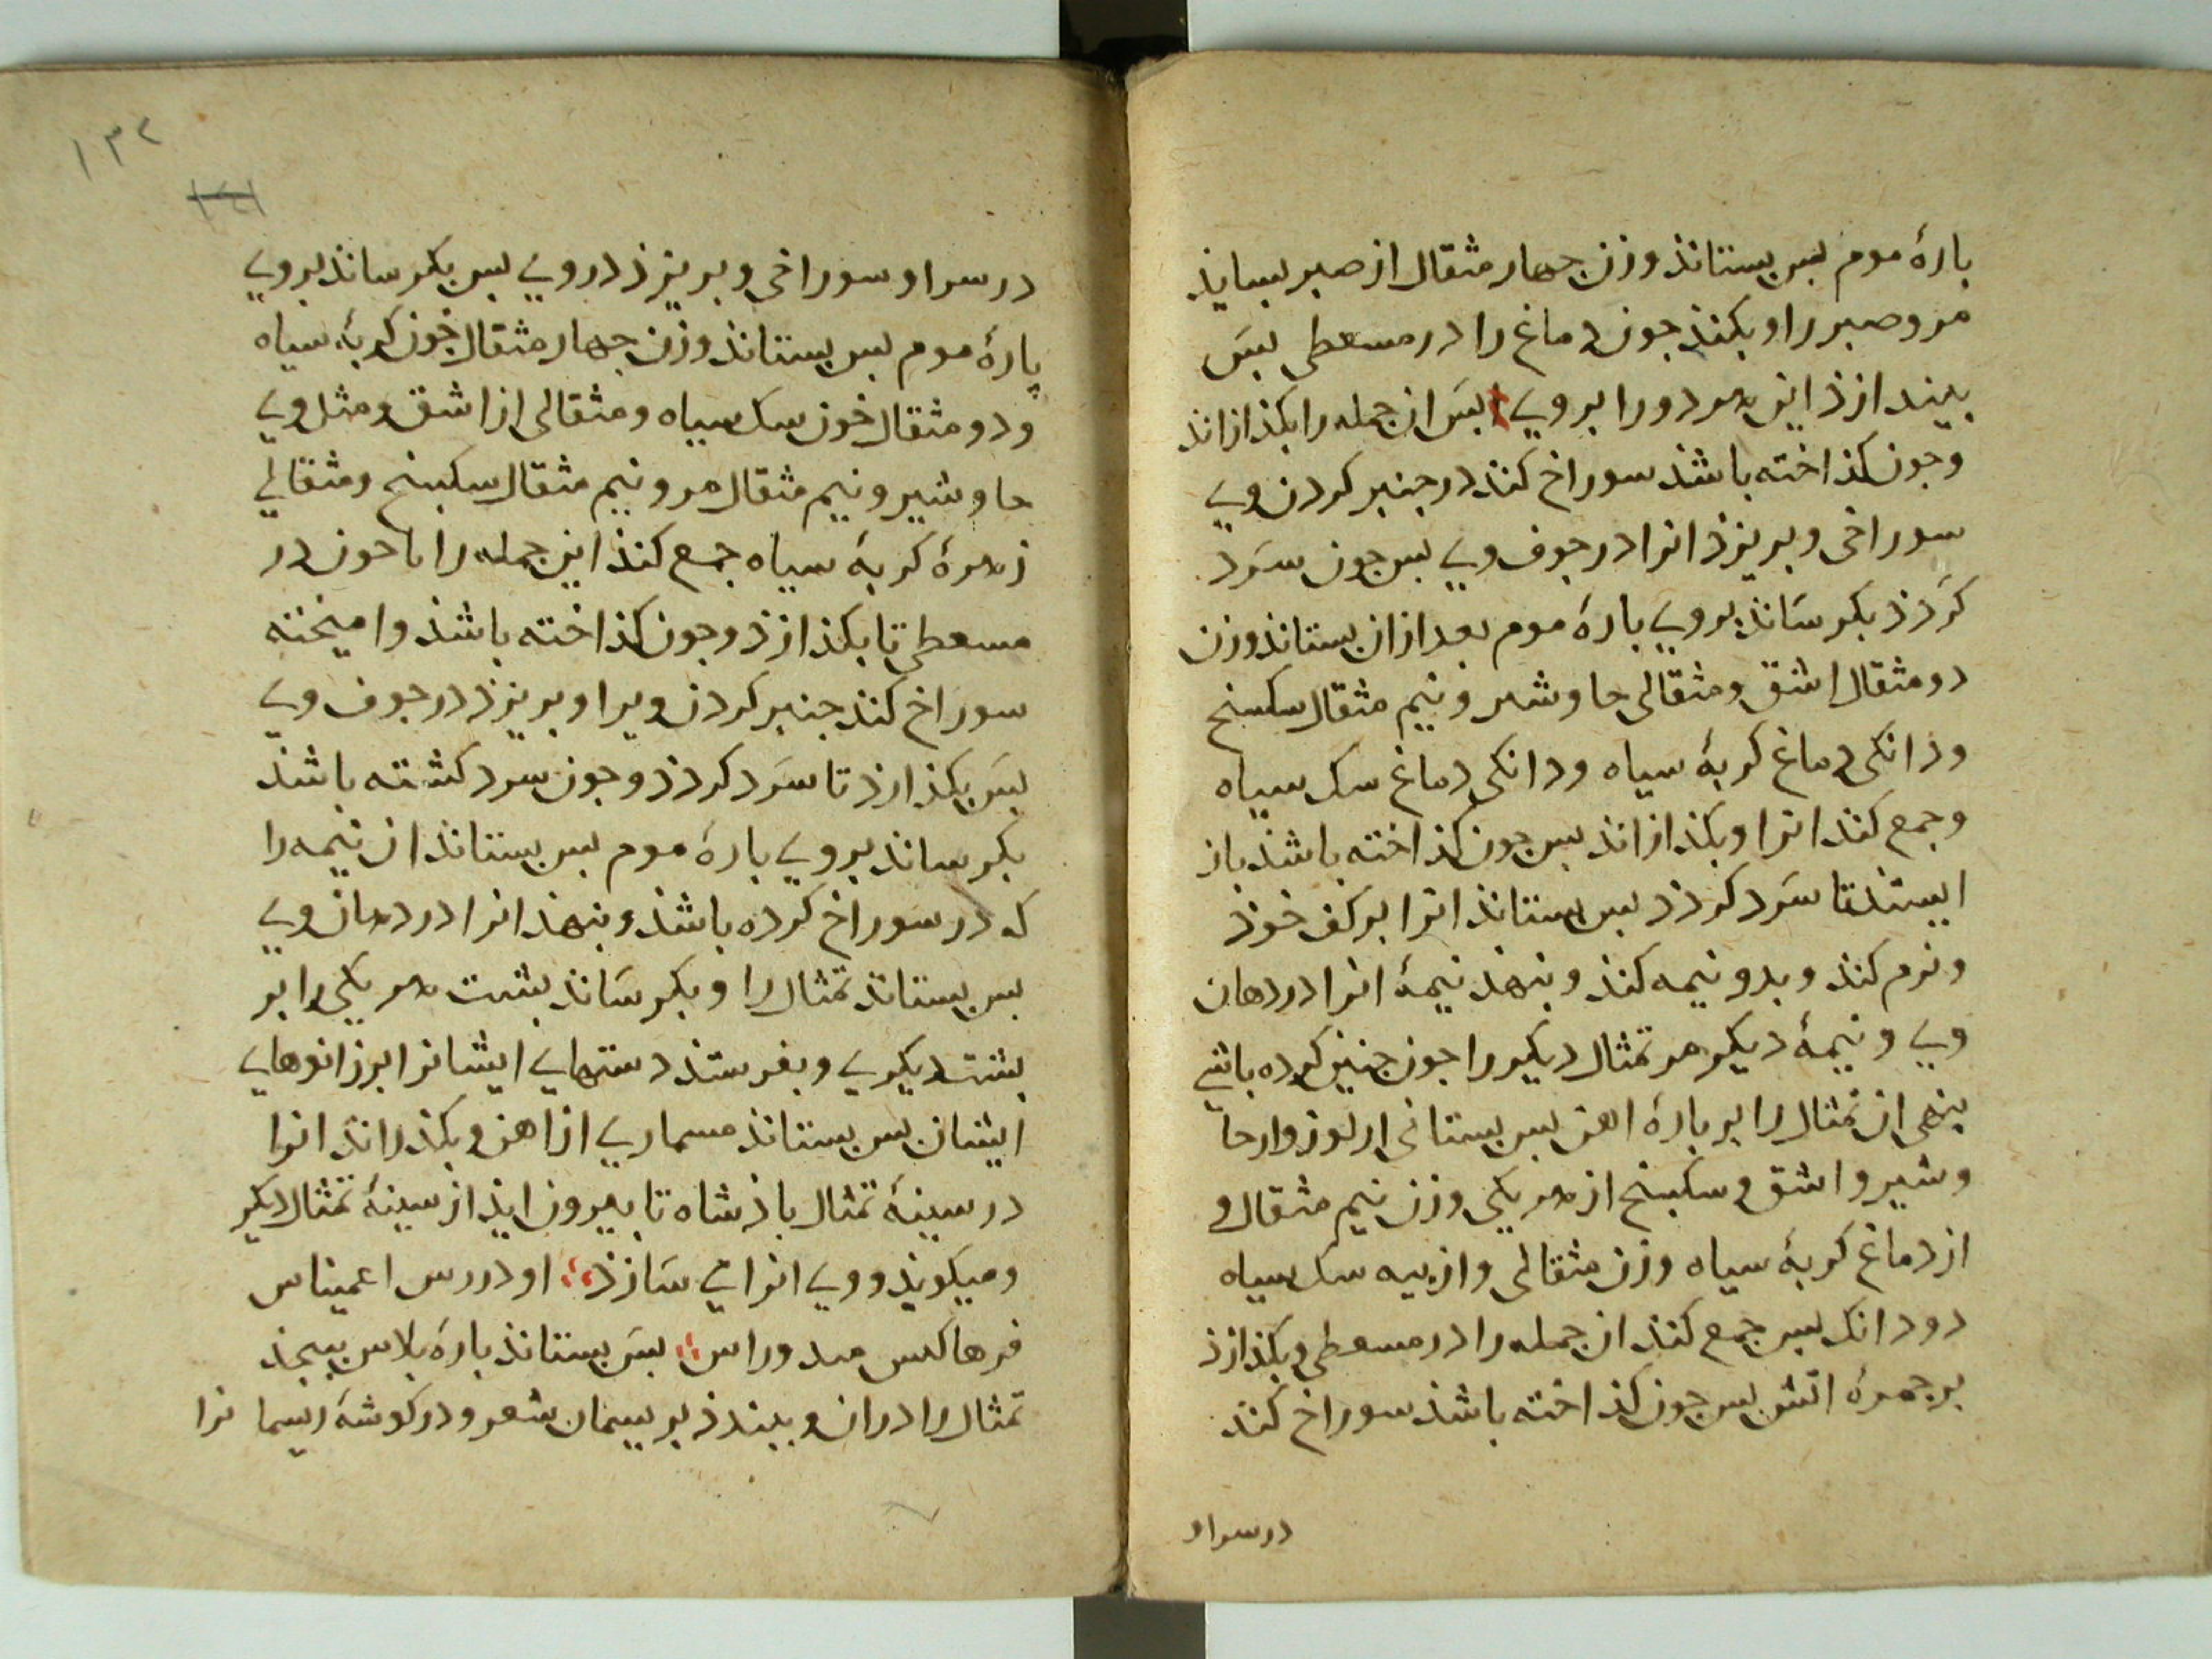 بارهٔ موم بس بستانذ وزن جهار مثقال از صبر بسایذ
مر و صبر را و بکنذ جون دماغ را در مسعطی بس
بیندازذ این هر دو را بروی بس ان جمله را بکذازانذ
وجون کذاخته باشذ سوراخ کنذ در جنبر کردن وی
سوراخی و بریزذ انرا در جوف وی بس جون سرد
کردذ بکر سانذ بروی بارهٔ موم بعد ازان بستانذ وزن
دو مثقال اشق و مثقالی جاوشیر و نیم مثقال سکبینج
وذانکی دماغ کربهٔ سیاه ودانکی دماغ سک سیاه
وجمع کنذ انرا و بکذازانذ بس جون کذاخته باشذ باز
ایستذ تا سرد کردذ بس بستانذ انرا بر کف خوذ
ونرم کنذ و بدو نیمه کنذ و بنهذ نیمهٔ انرا در دهان
وی و نیمهٔ دیکر مر تمثال دیکر را جون جنین کرده باشی
بنهی ان تمثال را بر بارهٔ اهن بس بستانی از لوز و از جا
وشیر و اشق و سکبینج از هر یکی وزن نیم مثقال و
از دماغ کربهٔ سیاه وزن مثقالی و از بیه سک سیاه
دو دانک بس جمع کنذ ان جمله را در مسعطی و بکذازذ
بر جمرهٔ اتش بس جون کذاخته باشذ سوراخ کنذ
در سر او
١٣٢
در سر او سوراخی و بریزذ در وی بس بکر سانذ بروی
پارهٔ موم بس بستانذ وزن جهار مثقال خون کربهٔ سیاه
ودو مثقال خون سک سیاه و مثقالی از اشق و مثل وی
جاوشیر و نیم مثقال مر و نیم مثقال سکبینج و مثقالی
زهرهٔ کربهٔ سیاه جمع کنذ این جمله را با خون در
مسعطی تا بکذازذ وجون کذاخته باشذ وامیخته
سوراخ کنذ جنبر کردن ویرا و بریزذ در جوف وی
بس بکذارذ تا سرد کردذ وجون سرد کشته باشذ
بکر سانذ بروی بارهٔ موم بس بستانذ ان نیمه را
که در سوراخ کرده باشذ و بنهذ انرا در دهان وی
بس بستانذ تمثال را و بکر سانذ بشت هر یکی را بر
بشت دیکری و بفرستذ دستهای ایشانرا بر زانوهای
ایشان بس بستانذ مسماری از اهن و بکذرانذ انرا
در سینهٔ تمثال باذشاه تا بیرون ایذ از سینهٔ تمثال دیکر
ومیکویذ ووی انرا می سازذ او دررس اعمیناس
فرهاکس مىدوراس بس بستانذ باره بلاس ببجذ
تمثال را دران و ببندذ بریسمان شعر و در کوشهٔ ریسما نرا